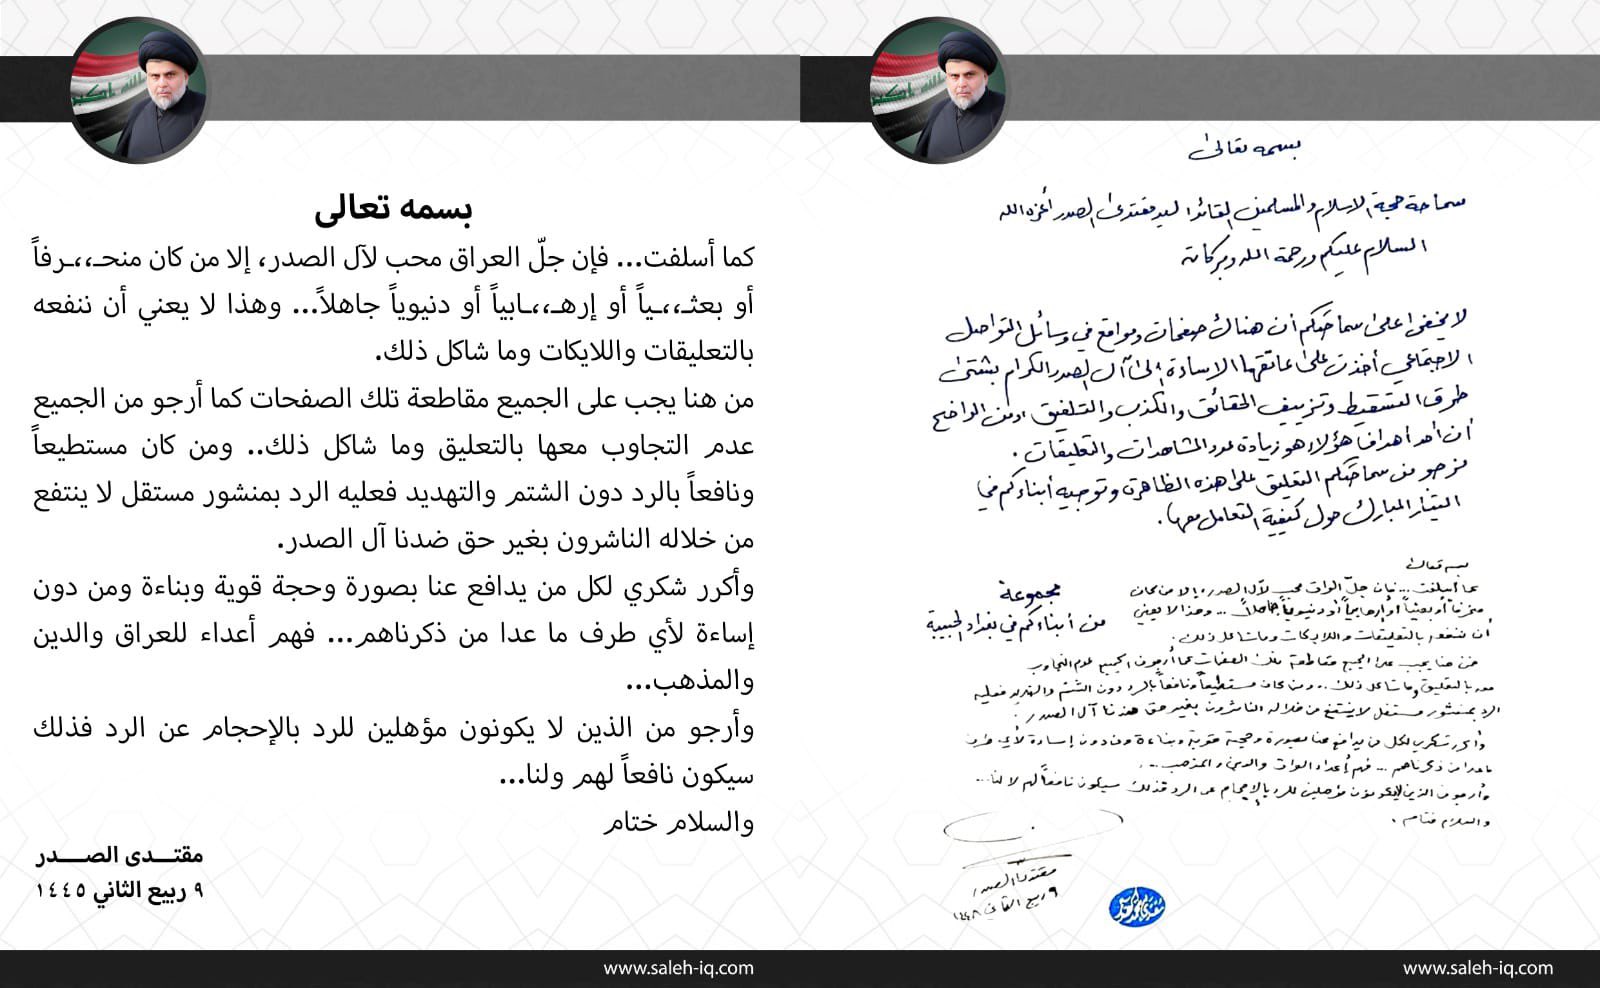 بسمه تعالى
كما أسلفت... فإن جلّ العراق محب لآل الصدر، إلا من كان منحـ،،ـرفاً
أو بعثـ،،ـياً أو إرهـ،،ـابياً أو دنيوياً جاهلاً... وهذا لا يعني أن ننفعه
بالتعليقات واللايكات وما شاكل ذلك.
من هنا يجب على الجميع مقاطعة تلك الصفحات كما أرجو من الجميع
عدم التجاوب معها بالتعليق وما شاكل ذلك.. ومن كان مستطيعاً
ونافعاً بالرد دون الشتم والتهديد فعليه الرد بمنشور مستقل لا ينتفع
من خلاله الناشرون بغير حق ضدنا آل الصدر.
وأكرر شكري لكل من يدافع عنا بصورة وحجة قوية وبناءة ومن دون
إساءة لأي طرف ما عدا من ذكرناهم... فهم أعداء للعراق والدين
والمذهب...
وأرجو من الذين لا يكونون مؤهلين للرد بالإحجام عن الرد فذلك
سيكون نافعاً لهم ولنا...
والسلام ختام
مقتـــدى الصـــــدر
٩ ربيع الثاني ١٤٤٥
www.saleh-iq.com
بسمه تعالى
سماحة حجة الاسلام والمسلمين القائد السيد مقتدى الصدر أعزه الله
السلام عليكم ورحمة الله وبركاته
لا يخفى على سماحتكم أن هناك صفحات ومواقع في وسائل التواصل
الاجتماعي أخذت على عاتقها الاساءة الى آل الصدر الكرام بشتى
طرق التسقيط وتزييف الحقائق والكذب والتلفيق ومن الواضح
أن أحد أهداف هؤلاء هو زيادة عدد المشاهدات والتعليقات.
نرجو من سماحتكم التعليق على هذه الظاهرة وتوجيه أبناءكم في
التيار المبارك حول كيفية التعامل معها.
مجموعة
من أبناءكم في بغداد الحبيبة
بسمه تعالى
كما أسلفت... فإن جلّ العراق محب لآل الصدر، إلا من كان
منحرفاً أو بعثياً أو إرهابياً أو دنيوياً جاهلاً... وهذا لا يعني
أن ننفعه بالتعليقات واللايكات وما شاكل ذلك.
من هنا يجب على الجميع مقاطعة تلك الصفحات كما أرجو من الجميع عدم التجاوب
معها بالتعليق وما شاكل ذلك.. ومن كان مستطيعاً ونافعاً بالرد دون الشتم والتهديد فعليه
الرد بمنشور مستقل لا ينتفع من خلاله الناشرون بغير حق ضدنا آل الصدر.
وأكرر شكري لكل من يدافع عنا بصورة وحجة قوية وبناءة ومن دون إساءة لأي طرف
ما عدا من ذكرناهم... فهم أعداء العراق والدين والمذهب...
وأرجو من الذين لا يكونون مؤهلين للرد بالإحجام عن الرد فذلك سيكون نافعاً لهم لا لنا...
والسلام ختام.
مقتدى الصدر
٩ ربيع الثاني
www.saleh-iq.com